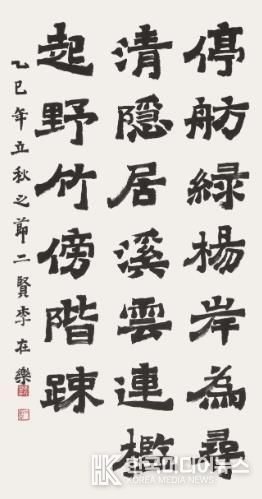 停舫綠楊岸為尋
清隱居溪雲連檻
起野竹傍階疎
乙巳年立秋之節二賢李在樂
HK 한국미디어뉴스
KOREA MEDIA NEWS